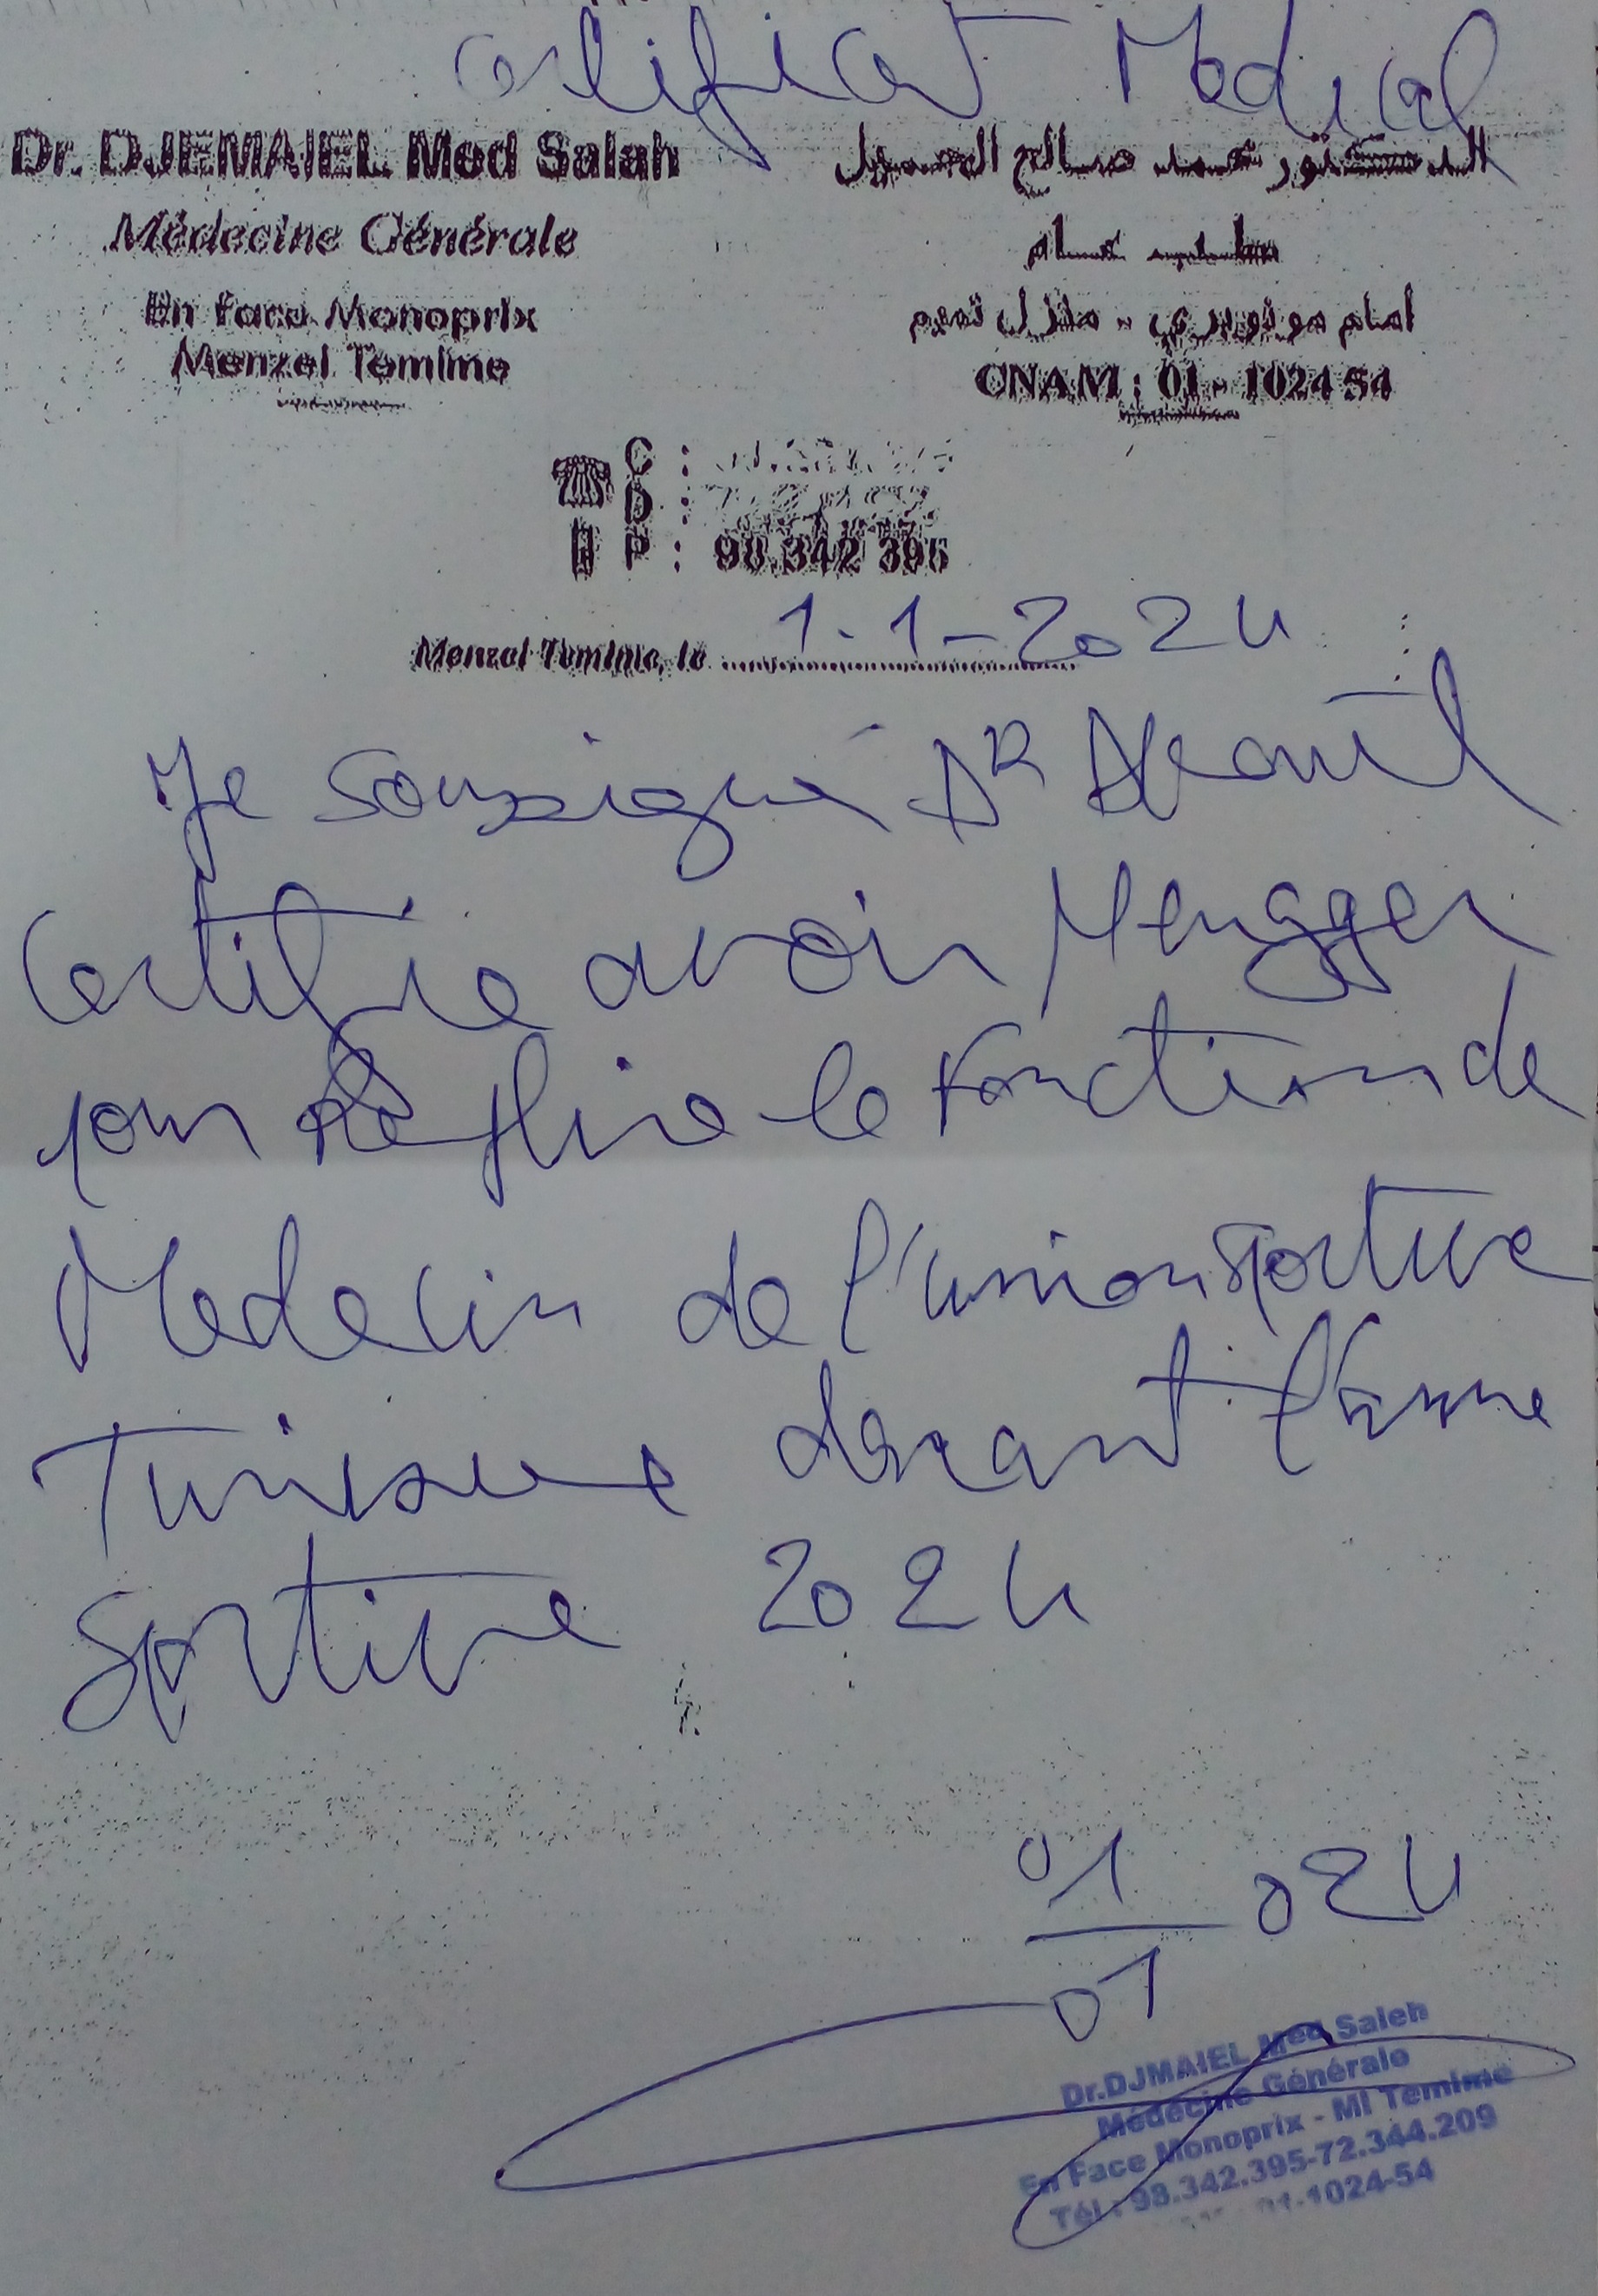 Certificat Medical
Dr. DJEMAIEL Med Salah
Médecine Générale
En face Monoprix
Menzel Temime
الدكتور محمد صالح الجميل
طبيب عام
امام مونوبري - منزل تميم
CNAM : 01 - 1024 54
C :
D :
P : 98 342 395
Menzel Temime, le 1-1-2024
Je soussigné DR
Certifie avoir
pour le fonction de
Medecin de l'union sportive
Tunisienne durant l'anne
Sportive 2024
01/01 024
Dr.DJMAIEL Med Saleh
Médecine Générale
En Face Monoprix - Ml Temime
Tél : 98.342.395-72.344.209
01-1024-54